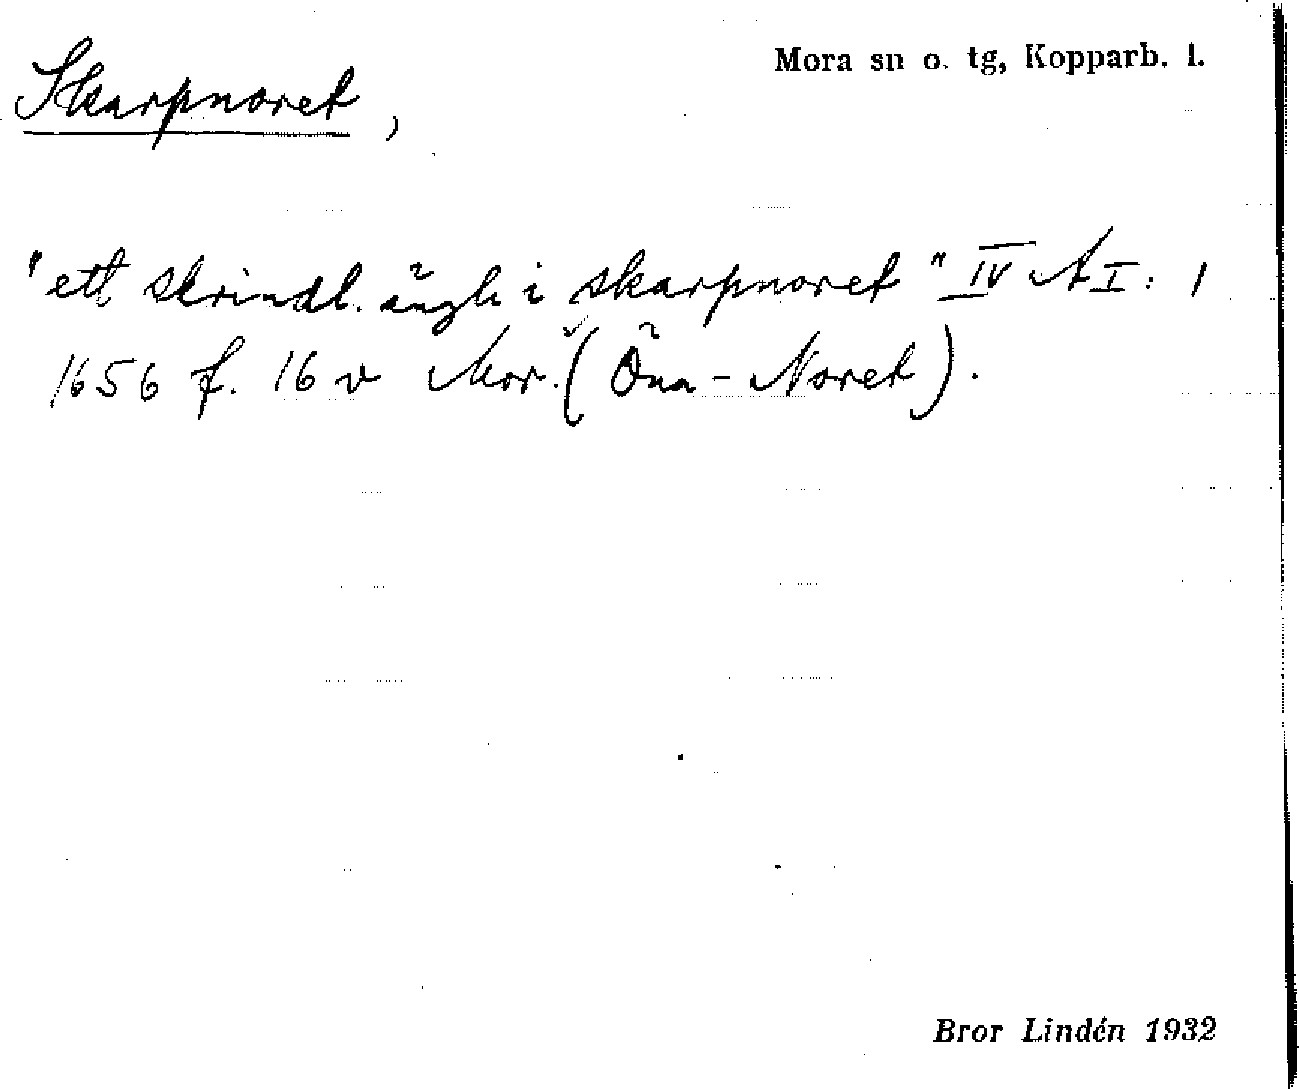 Mora sn o. tg, Kopparb. l.
Skarpnoret,
"ett skrindl. ängh i skarpnoret" IV A I: 1
1656 f. 16 v Mor. (Öna-Noret).
Bror Lindén 1932